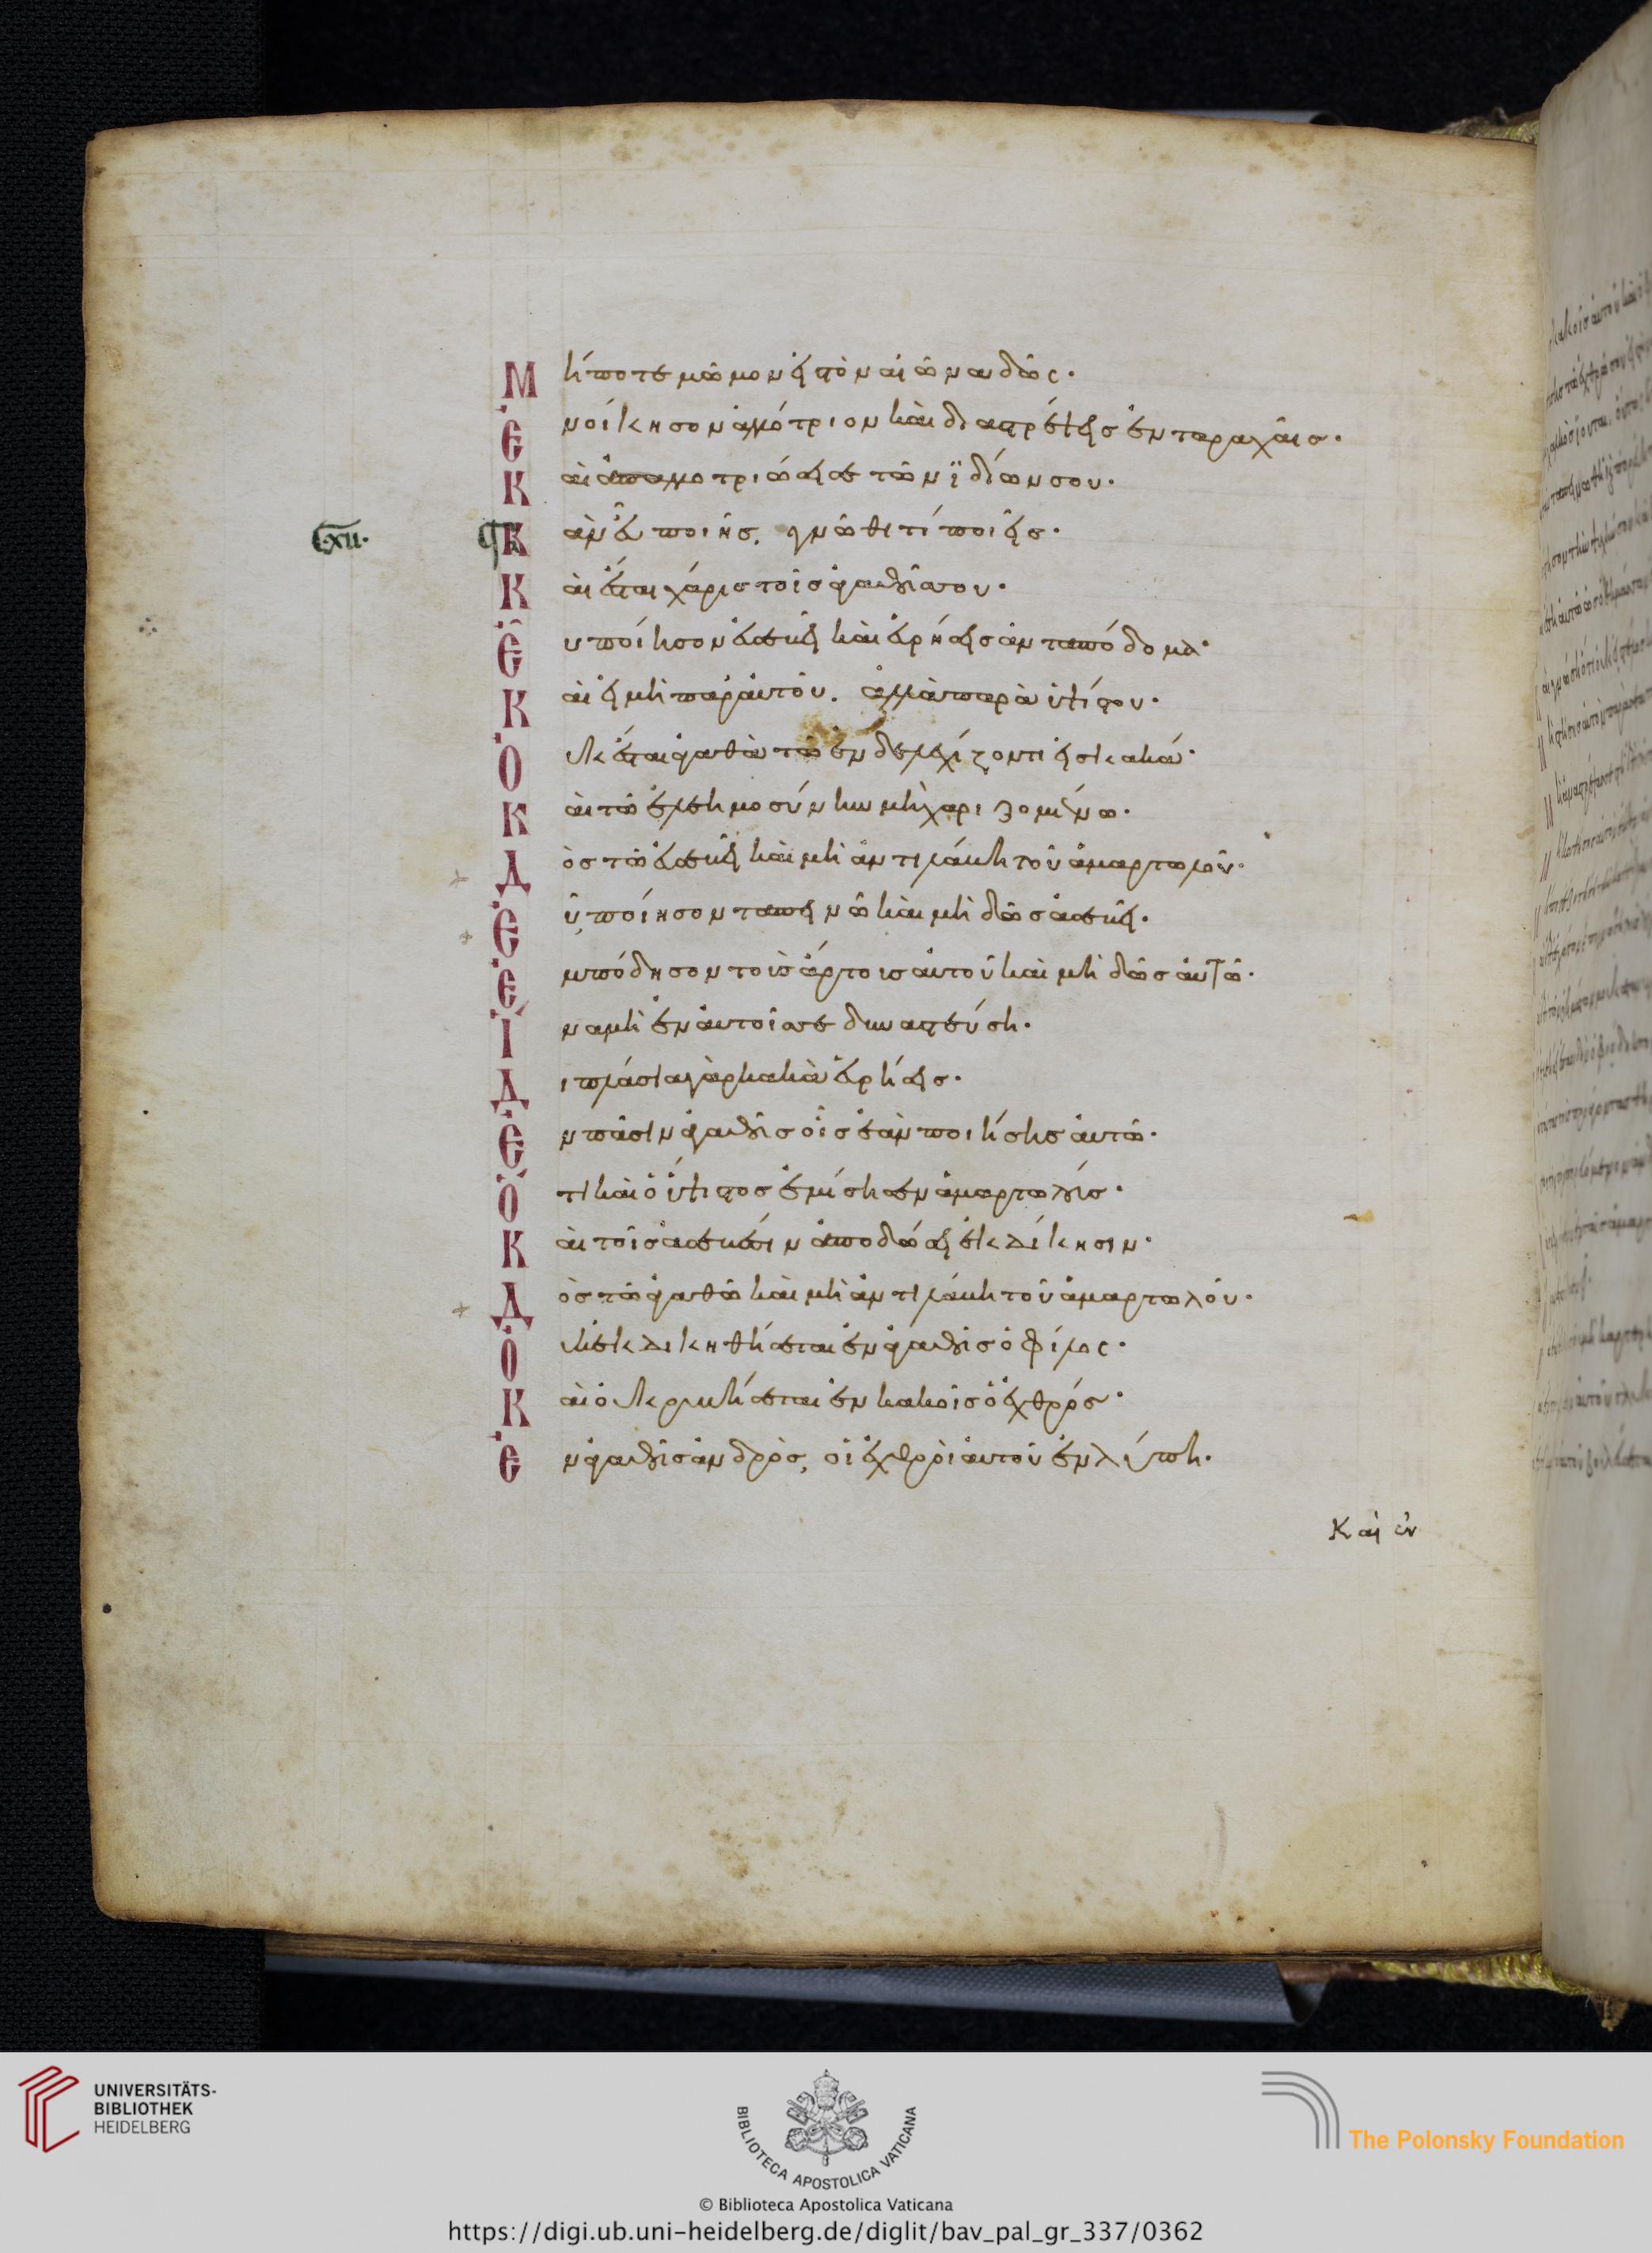 Μήποτε μῶμον εἰς τὸν αἰῶνα δῶς·
Ἐνοίκησον ἀλλότριον καὶ διαστρέψει σε ἐν ταραχαῖς·
Καὶ ἀπαλλοτριώσει σε τῶν ἰδίων σου·
Cxii· Κ ἂν εὖ ποιῇς, γνῶθι τί ποιεῖς·
Καὶ ἔσται χάρις τοῖς ἀγαθοῖς σου·
Εὐποίησον εὐσεβεῖ καὶ εὑρήσεις ἀνταπόδομα·
Καὶ εἰ μὴ παρ' αὐτοῦ. ἀλλὰ παρὰ ὑψίστου·
Οὐκ ἔσται ἀγαθὰ τῷ ἐνδελεχίζοντι εἰς κακά·
Καὶ τῷ ἐλεημοσύνην μὴ χαριζομένῳ·
Δὸς τῷ εὐσεβεῖ καὶ μὴ ἀντιλάβῃ τοῦ ἁμαρτωλοῦ·
Εὖ ποίησον ταπεινῷ καὶ μὴ δῷς ἀσεβεῖ·
Ἐμπόδησον τοὺς ἄρτους αὐτοῦ καὶ μὴ δῷς αὐτῷ·
Ἵνα μὴ ἐν αὐτοῖς σε δυναστεύσῃ·
Διπλάσια γὰρ κακὰ εὑρήσεις·
Ἐν πᾶσιν ἀγαθοῖς οἷς ἐὰν ποιήσῃς αὐτῷ·
Ὅτι καὶ ὁ ὕψιστος ἐμίσησεν ἁμαρτωλούς·
Καὶ τοῖς ἀσεβέσιν ἀποδώσει ἐκδίκησιν·
Δὸς τῷ ἀγαθῷ καὶ μὴ ἀντιλάβῃ τοῦ ἁμαρτωλοῦ·
Οὐκ ἐκδικηθήσεται ἐν ἀγαθοῖς ὁ φίλος·
Καὶ οὐ κρυβήσεται ἐν κακοῖς ὁ ἐχθρός·
Ἐν ἀγαθοῖς ἀνδρὸς, οἱ ἐχθροὶ αὐτοῦ ἐν λύπῃ·
Καὶ ἐν
UNIVERSITÄTS-
BIBLIOTHEK
HEIDELBERG
BIBLIOTECA APOSTOLICA VATICANA
The Polonsky Foundation
© Biblioteca Apostolica Vaticana
https://digi.ub.uni-heidelberg.de/diglit/bav_pal_gr_337/0362